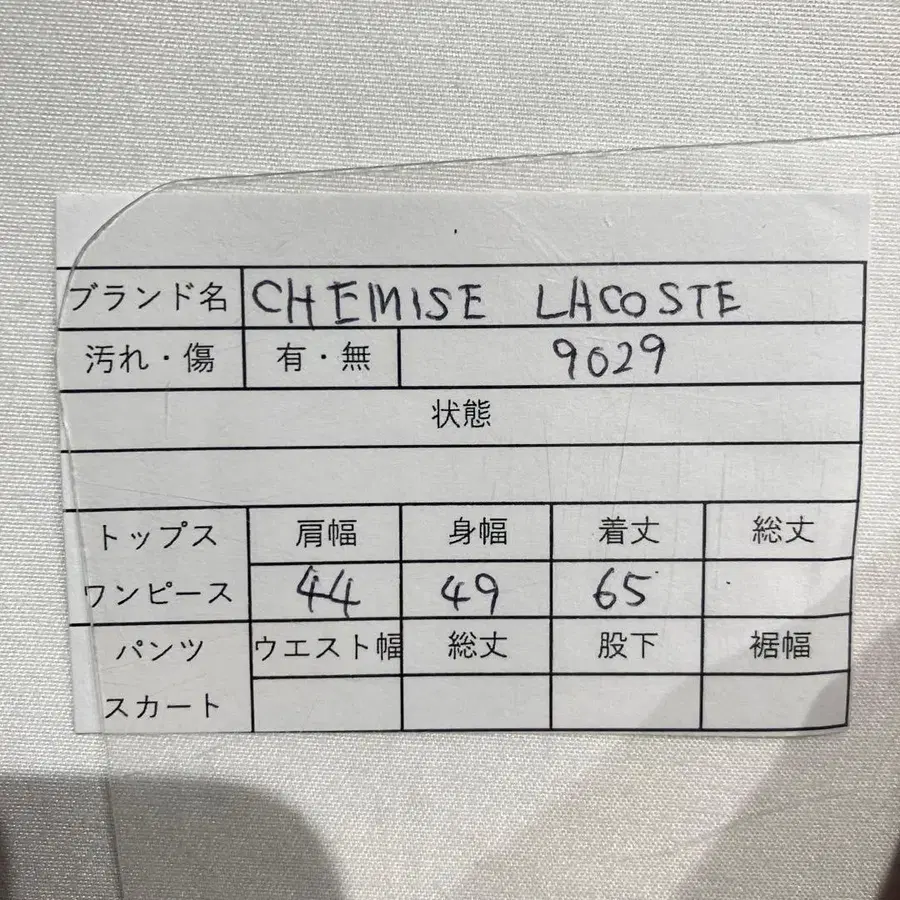 ブランド名 CHEMISE LACOSTE
汚れ・傷 有・無 9029
状態
トップス 肩幅 身幅 着丈 総丈
ワンピース 44 49 65
パンツ ウエスト幅 総丈 股下 裾幅
スカート